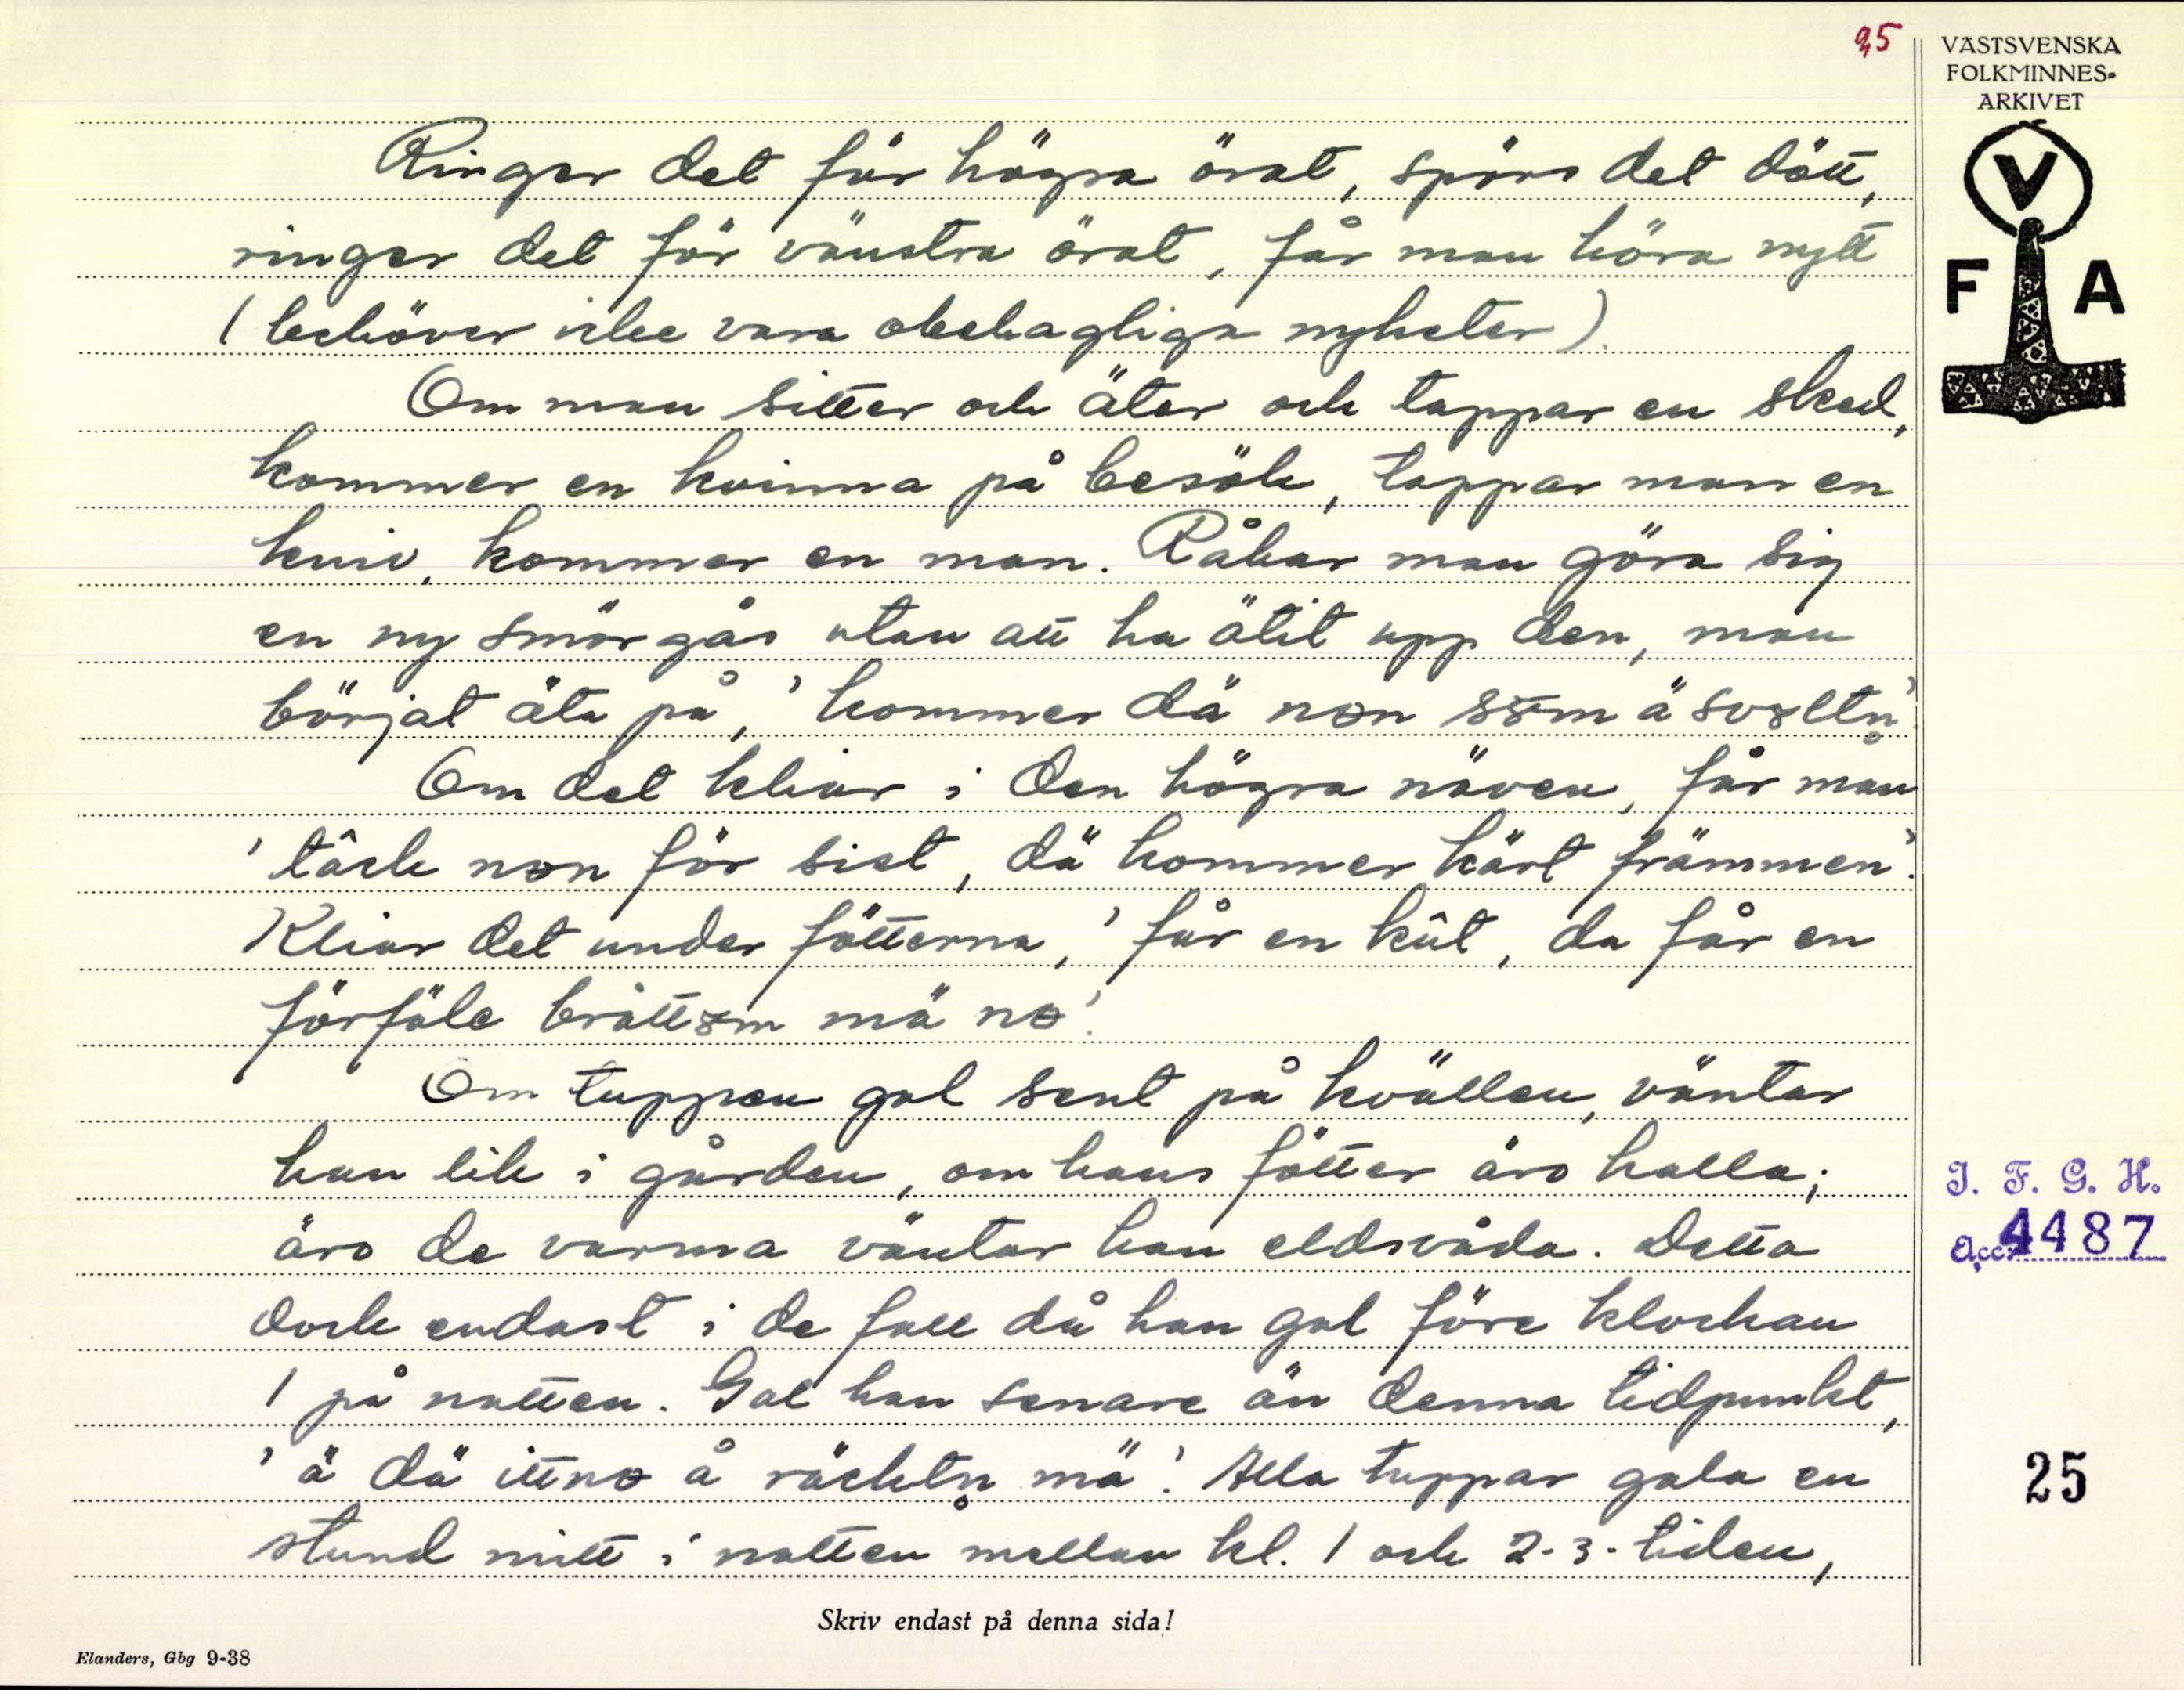 25
VÄSTSVENSKA
FOLKMINNES-
ARKIVET
V
F A
Ringer det för högra örat, spörs det dött,
ringer det för vänstra örat, får man höra nytt
(behöver icke vara obehagliga nyheter).
Om man sitter och äter och tappar en sked,
kommer en kvinna på besök, tappar man en
kniv, kommer en man. Råkar man göra sig
en ny smörgås utan att ha ätit upp den, man
börjat äta på, 'kommer dä nøn søm ä svøltn̥'.
Om det kliar i den högra näven, får man
'tâck nøn för sist, dä kommer kärt främmen'.
Kliar det under fötterna, 'får en kût, da får en
förfäle bråttøm mä nø'.
Om tuppen gal sent på kvällen, väntar
han lik i gården, om hans fötter äro kalla;
äro de varma väntar han eldsvåda. Detta
dock endast i de fall då han gal före klockan
1 på natten. Gal han senare än denna tidpunkt,
'ä dä ittnø å räcktn̥ mä'. Alla tuppar gala en
stund mitt i natten mellan kl. 1 och 2-3-tiden,
I. F. G. H.
Acc. 4487
25
Skriv endast på denna sida!
Elanders, Gbg 9-38